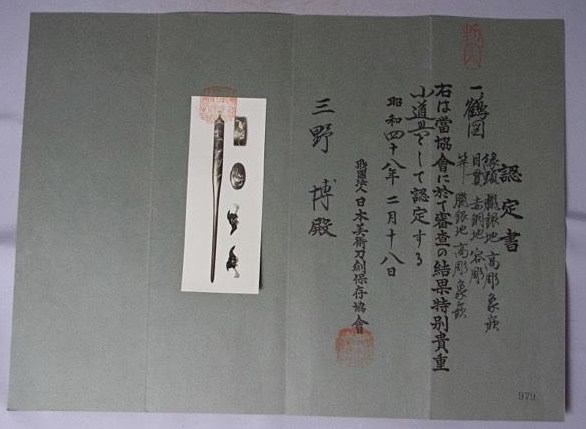 認定書
一、鶴図
縁頭 朧銀地 高彫 象嵌
目貫 赤銅地 容彫
笄 朧銀地 高彫 象嵌
右は當協會に於て審査の結果特別貴重
小道具として認定する
昭和四十八年二月十八日
財團法人 日本美術刀剣保存協會
三野博殿
979